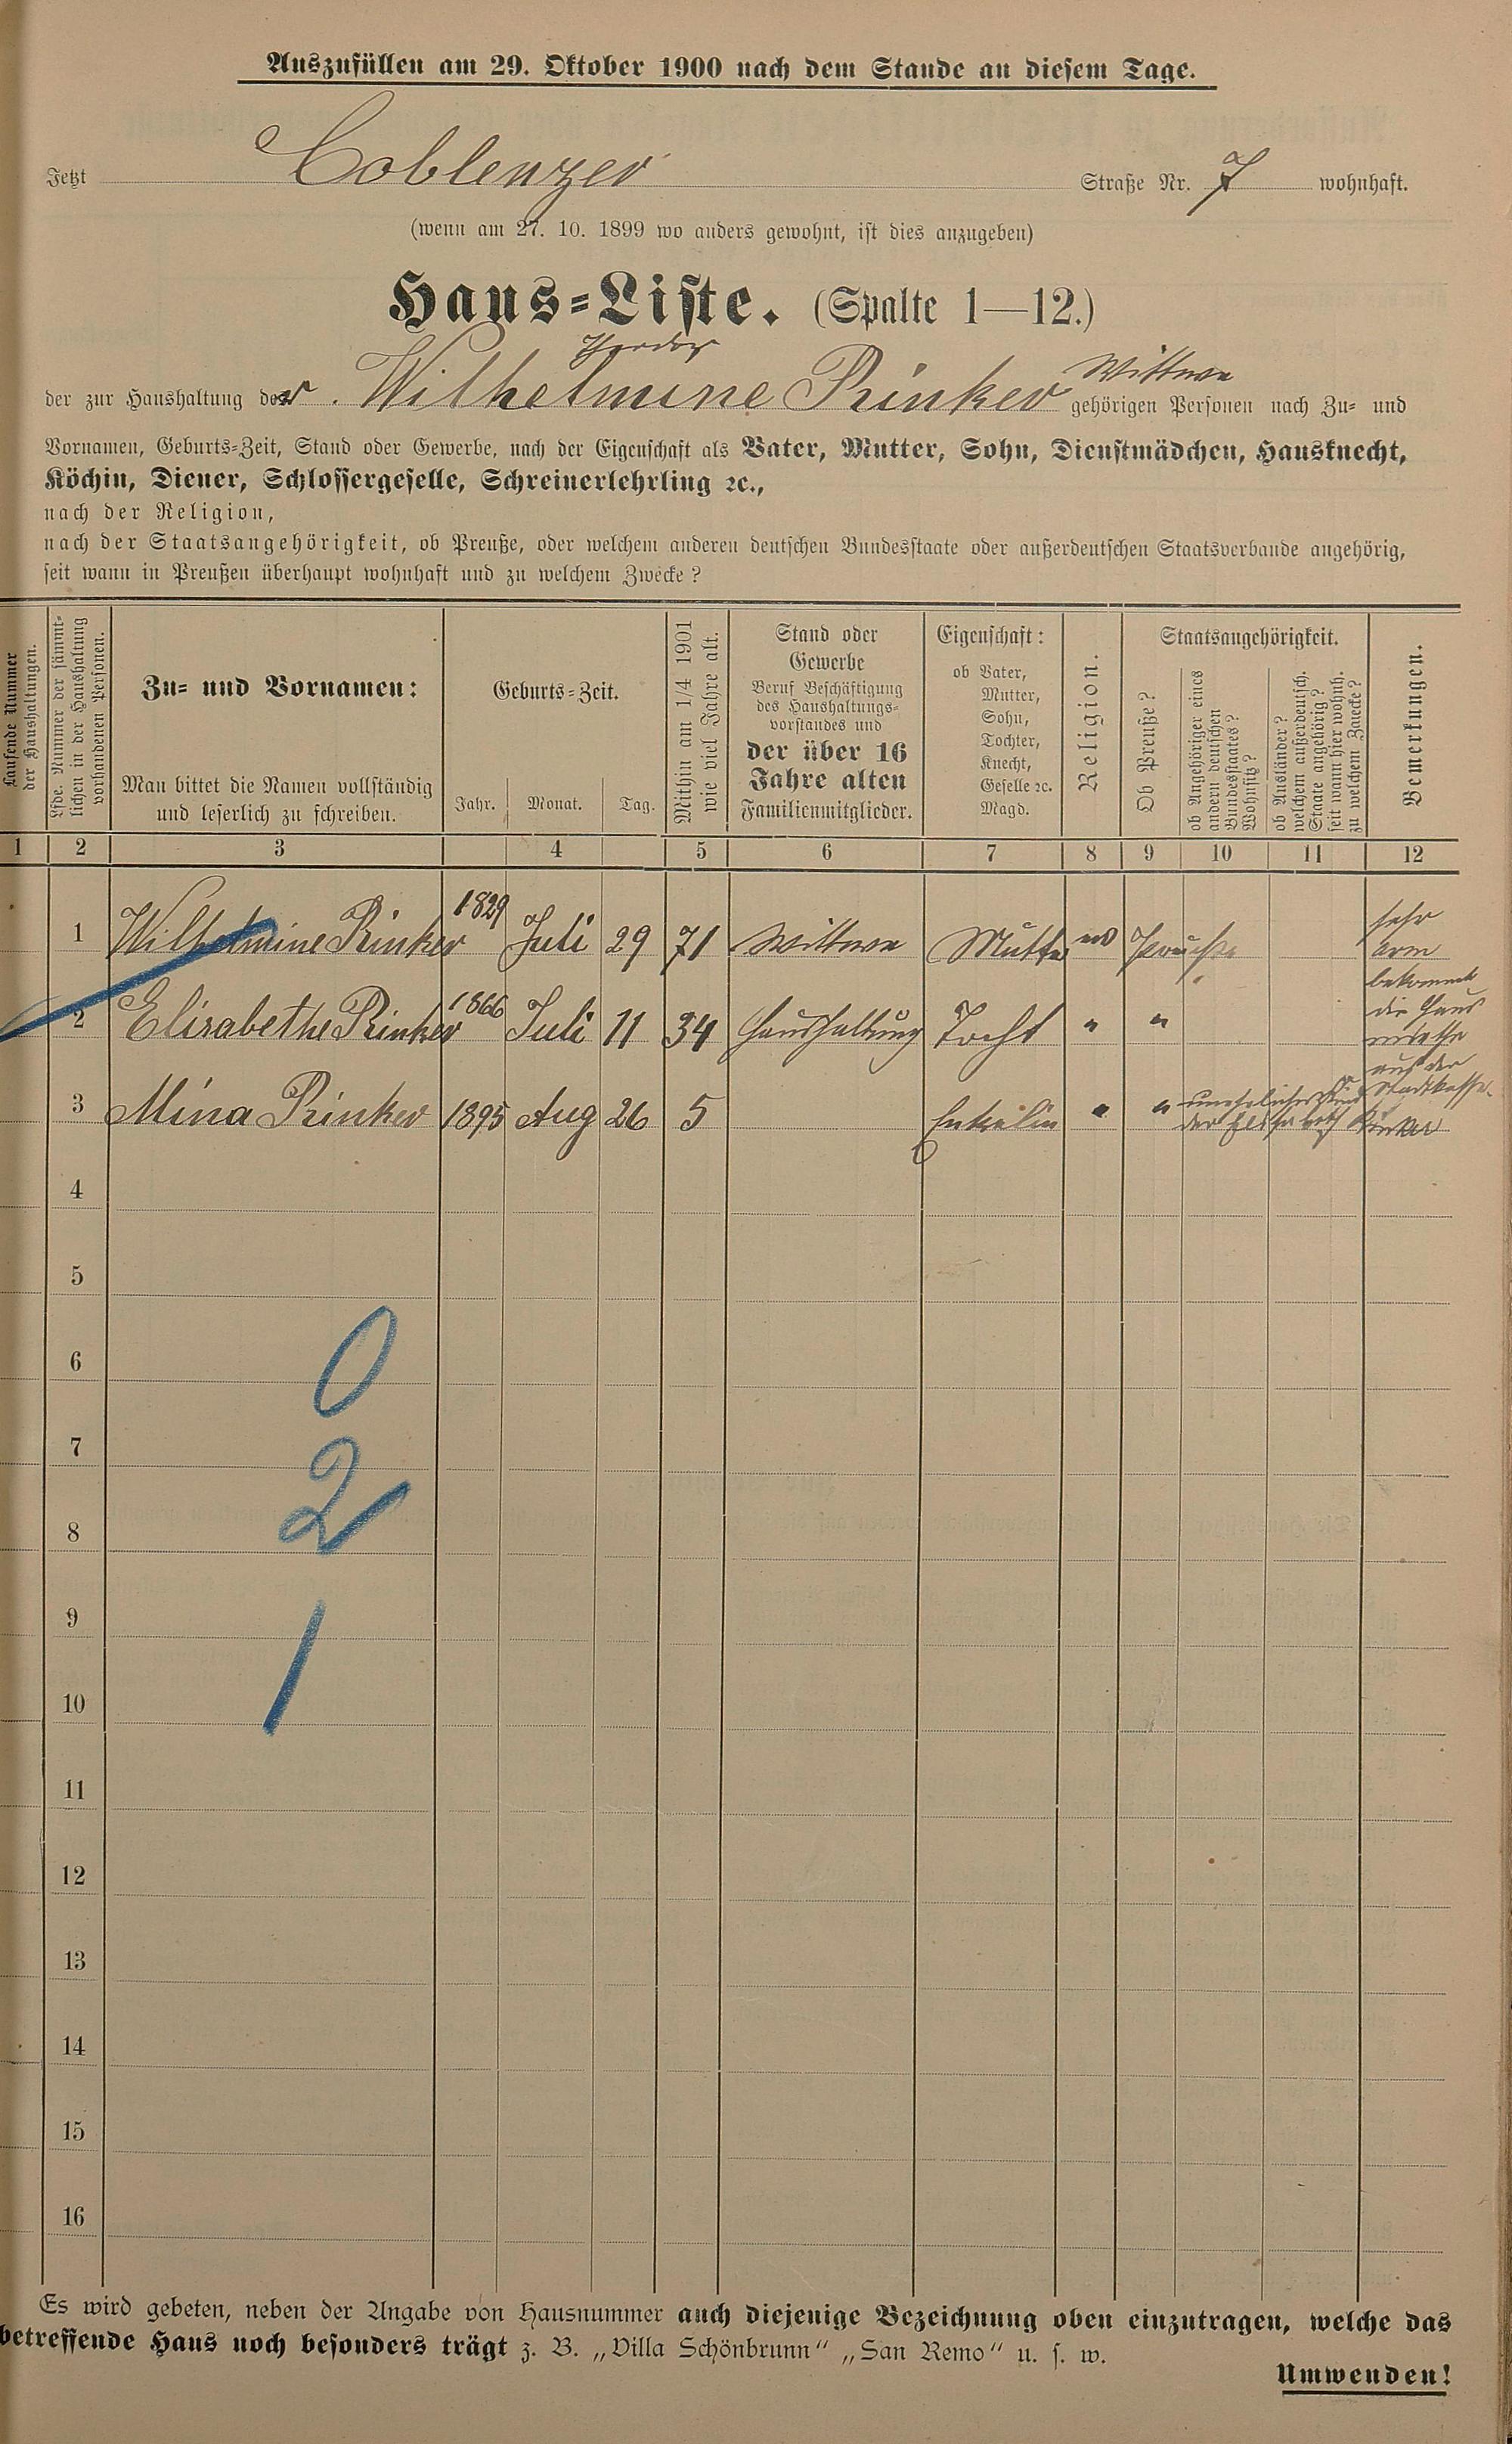 Auszufüllen am 29. Oktober 1900 nach dem Stande an diesem Tage.
Jetzt Coblenzer Straße Nr. 7 wohnhaft.
(wenn am 27. 10. 1899 wo anders gewohnt, ist dies anzugeben)
Haus-Liste. (Spalte 1—12.)
Theodor
der zur Haushaltung der Wilhelmine Rinker Wittwe gehörigen Personen nach Zu- und
Vornamen, Geburts-Zeit, Stand oder Gewerbe, nach der Eigenschaft als Vater, Mutter, Sohn, Dienstmädchen, Hausknecht,
Köchin, Diener, Schlossergeselle, Schreinerlehrling ꝛc.,
nach der Religion,
nach der Staatsangehörigkeit, ob Preuße, oder welchem anderen deutschen Bundesstaate oder außerdeutschen Staatsverbande angehörig,
seit wann in Preußen überhaupt wohnhaft und zu welchem Zwecke?
Laufende Nummer
der Haushaltungen.
Lfde. Nummer der sämmt-
lichen in der Haushaltung
vorhandenen Personen.
Zu- und Vornamen:
Man bittet die Namen vollständig
und leserlich zu schreiben.
Geburts-Zeit.
Jahr. Monat. Tag.
Mithin am 1/4 1901
wie viel Jahre alt.
Stand oder
Gewerbe
Beruf Beschäftigung
des Haushaltungs-
vorstandes und
der über 16
Jahre alten
Familienmitglieder.
Eigenschaft:
ob Vater,
Mutter,
Sohn,
Tochter,
Knecht,
Geselle ꝛc.
Magd.
Religion.
Staatsangehörigkeit.
Ob Preuße?
ob Angehöriger eines
andern deutschen
Bundesstaates?
Wohnsitz?
ob Ausländer?
welchem außerdeutsch.
Staate angehörig?
seit wann hier wohnh.
zu welchem Zwecke?
Bemerkungen.
1 2 3 4 5 6 7 8 9 10 11 12
1 Wilhelmine Rinker 1829 Juli 29 71 Wittwe Mutter ev Preuße
sehr
arm
2 Elisabethe Rinker 1866 Juli 11 34 Haushaltung Tocht " "
bekommt
die Haus
miethe
aus der
Stadtkasse.
3 Mina Rinker 1895 Aug 26 5 Enkelin " " uneheliches Kind
der Elisabeth Rinker
4
5
6
0
7
2
8
9
1
10
11
12
13
14
15
16
Es wird gebeten, neben der Angabe von Hausnummer auch diejenige Bezeichnung oben einzutragen, welche das
betreffende Haus noch besonders trägt z. B. „Villa Schönbrunn“ „San Remo“ u. s. w.
Umwenden!